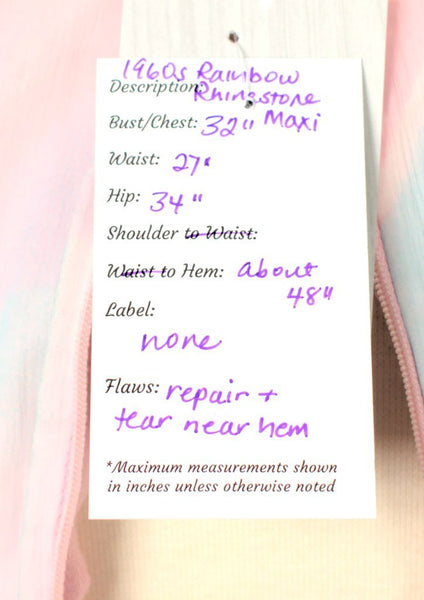 1960s Rainbow
Description: Rhinestone
Bust/Chest: 32" Maxi
Waist: 27"
Hip: 34"
Shoulder to Waist:
Waist to Hem: about
48"
Label:
none
Flaws: repair +
tear near hem
*Maximum measurements shown
in inches unless otherwise noted